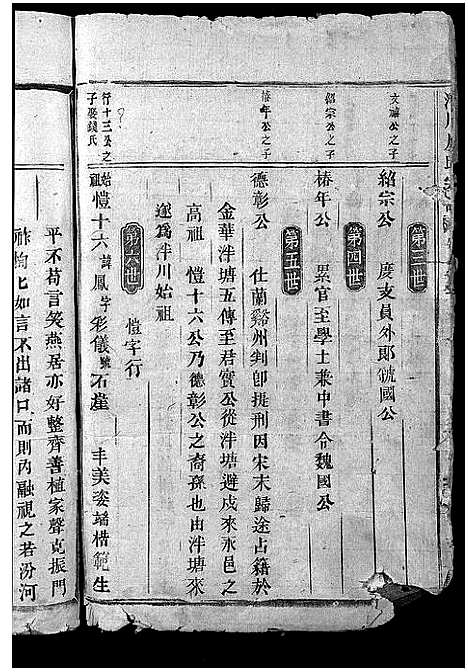 第三世
文誧公之子
紹宗公　度支員外郎虢國公
第四世
紹宗公之子
椿年公　累官至學士兼中書令魏國公
第五世
椿年公之子
德彰公　仕蘭谿州判卽提刑因宋末歸途占籍於
金華泮塘五傳至君實公從泮塘避戍來永邑之
高祖　愷十六公乃德彰公之裔孫也由泮塘來
遂爲泮川始祖
第六世　愷字行
行十三公之子娶錢氏
始祖愷十六諱鳳字彩儀號石崖　丰美姿端楷範生
平不苟言笑燕居亦好整齊善植家聲克振門
祚恂匕如言不出諸口而則內融視之若汾河